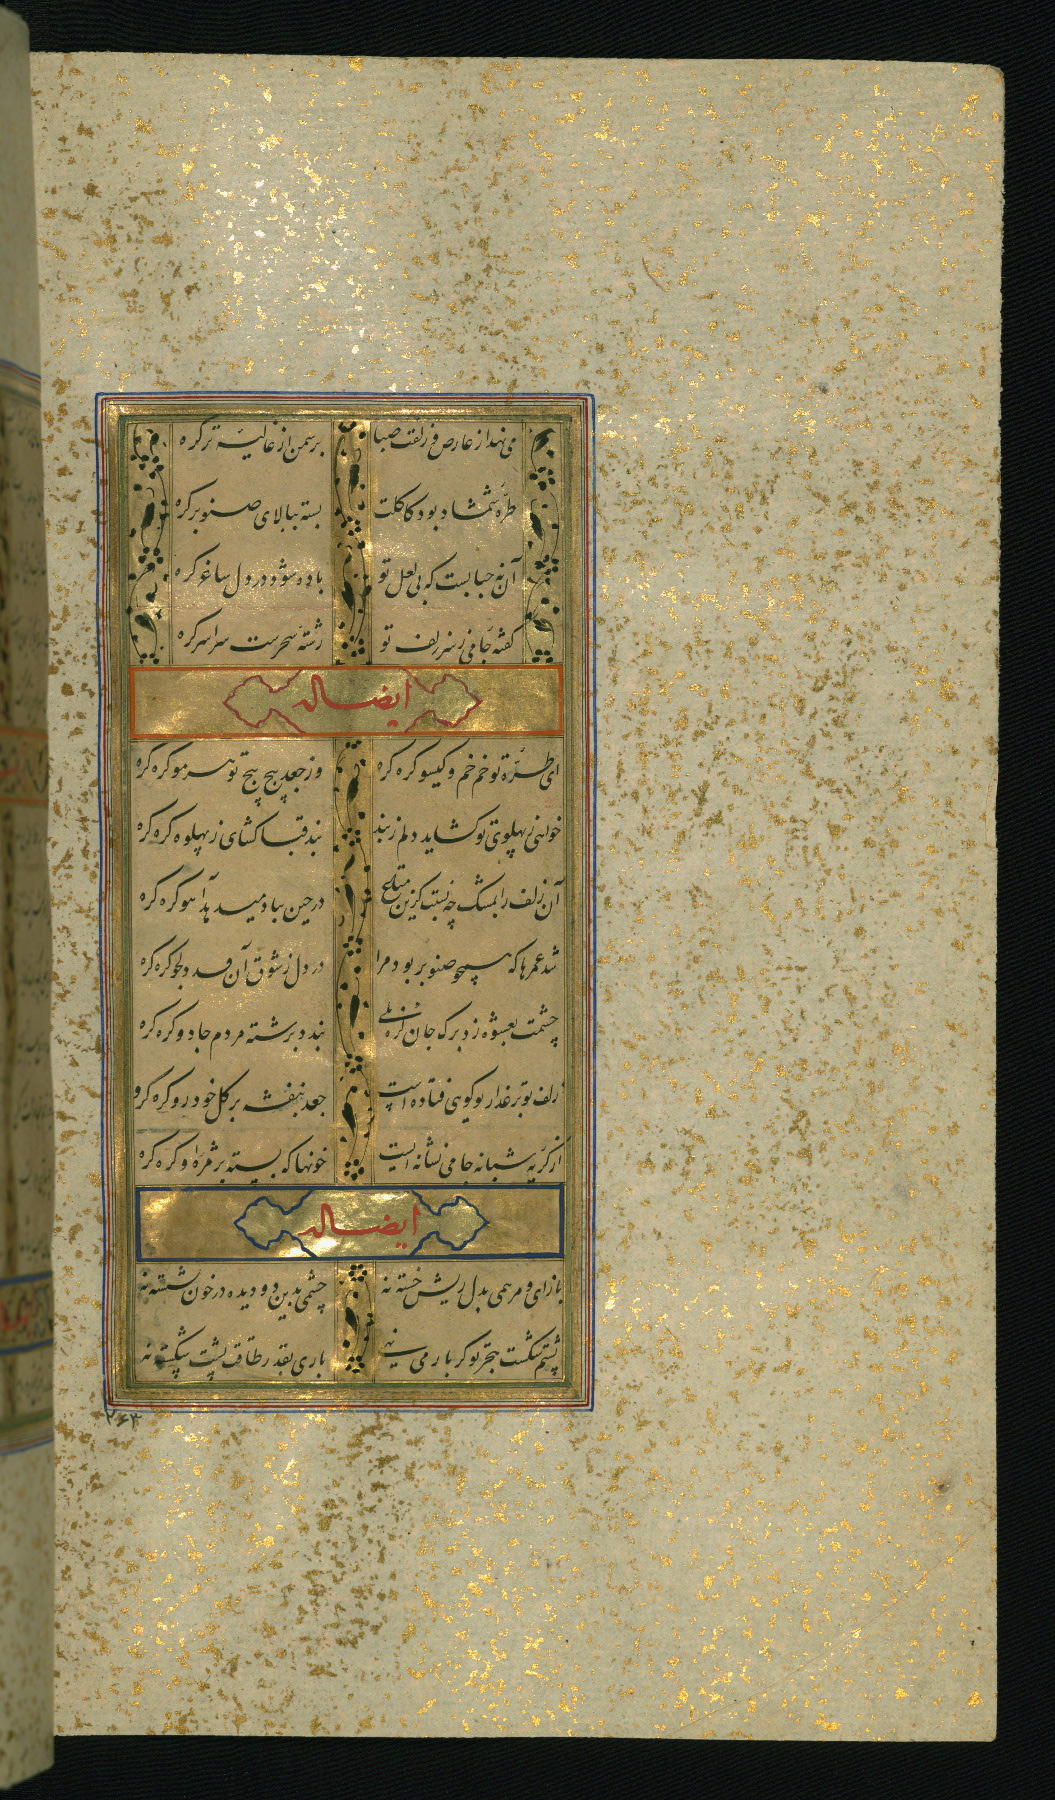 می نهد از عارض و زلفت صبا بر سمن از غالیهٔ تر گره
طرهٔ شمشاد بود کاکلت بسته ببالای صنوبر گره
آن نه حبابست که بی لعل تو باده شود در دل ساغر گره
گفتهٔ جامی ز سر زلف تو رشتهٔ سحرست سراسر گره
ایضا له
ای طرّهٔ تو خم خم و گیسو گره گره وز جعد پیچ پیچ تو هر مو گره گره
خواهی ز پهلوی تو گشاید دلم ز بند بند قبا گشای ز پهلو گره گره
آن زلف را بمشک چه نسبت کزین متاع در چین بباد میدهد آهو گره گره
شد عمرها که همچو صنوبر بود مرا در دل ز شوق آن قد دلجو گره گره
چشمت بعشوه زد برگ جان گره بلی بندد برشته مردم جادو گره گره
زلف تو بر عذار تو گویی فتاده است جعد بنفشه بر گل خودرو گره گره
از گریهٔ شبانه جامی نشانه ایست خونها که بسته بر مژهٔ او گره گره
ایضا له
باز ای و مرهمی بدل ریش خسته نه چشمی بدین دو دیده در خون نشسته نه
پشتم شکست هجر تو گر بار می نهی باری بقدر طاقت پشت شکسته نه
۲۶۳